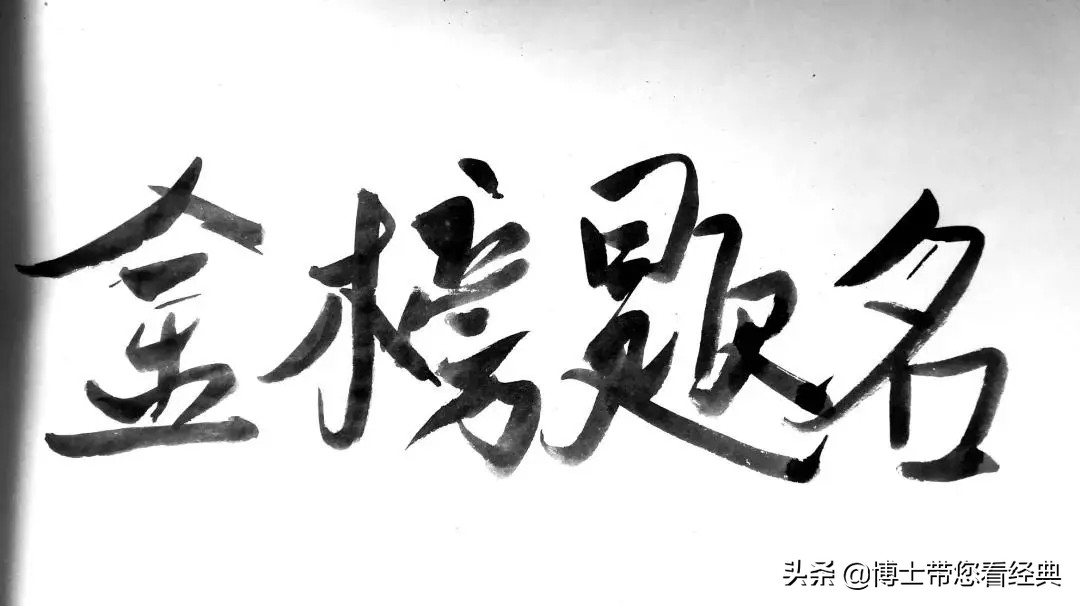 金榜题名
头条 @博士带您看经典